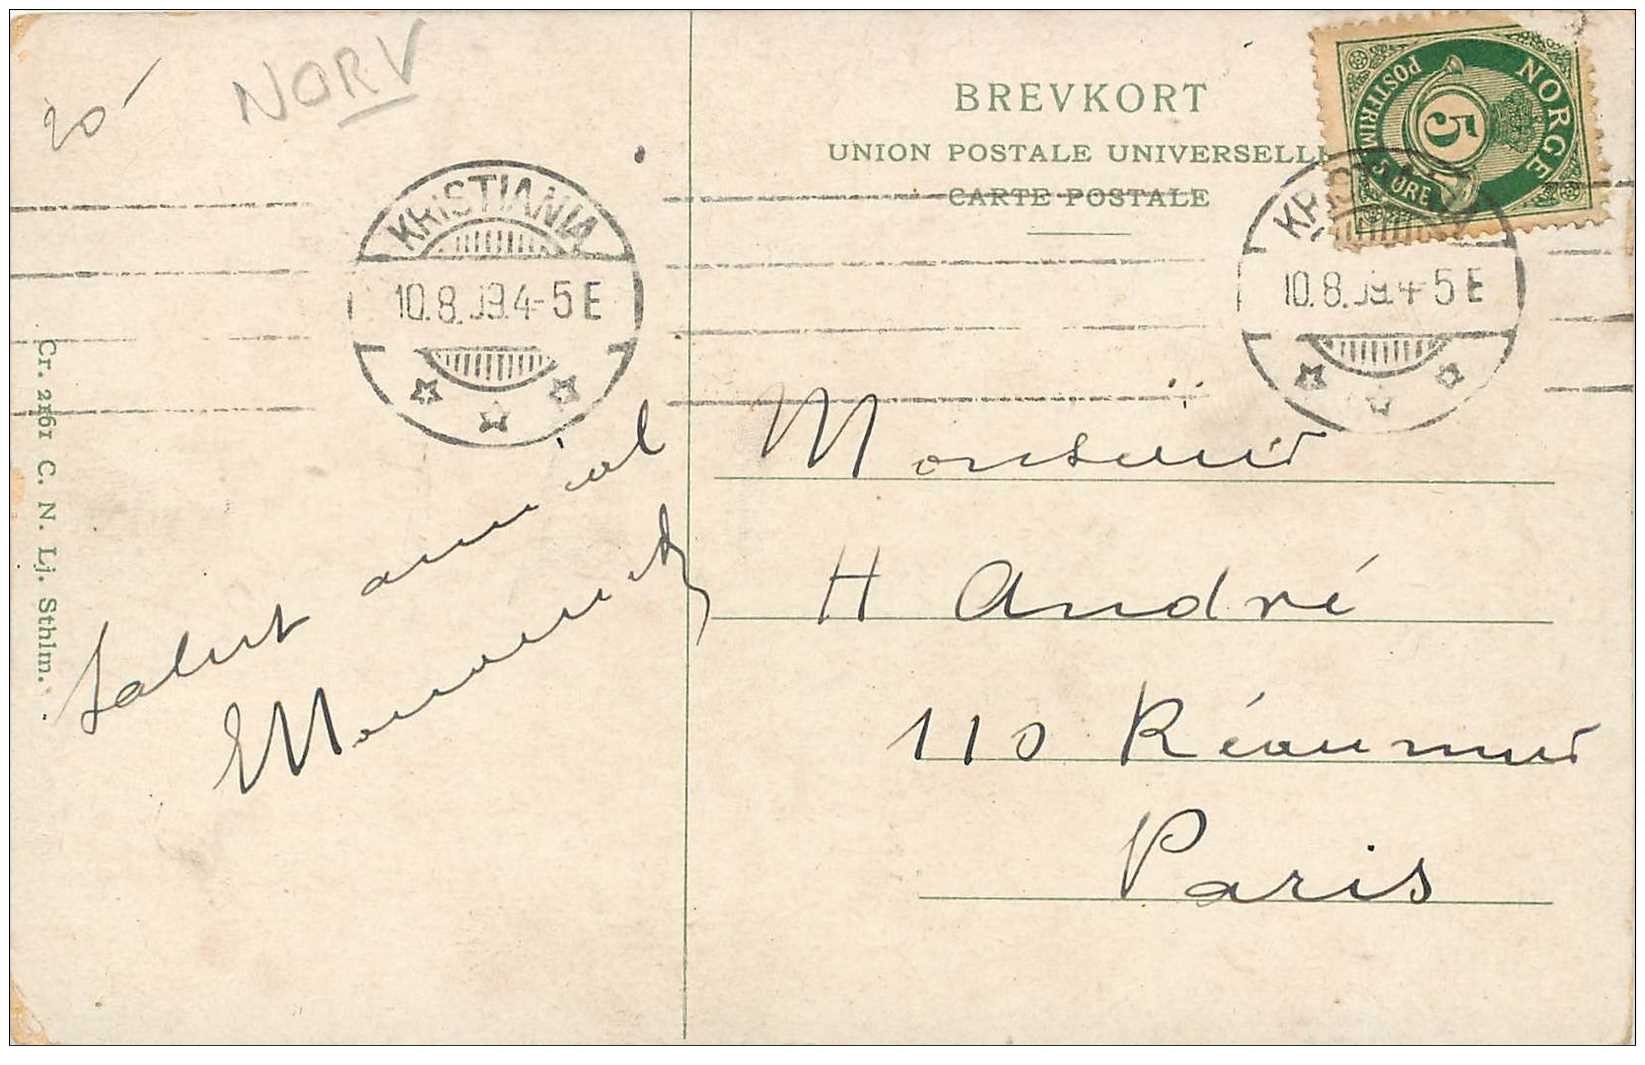 20 -
NORV
BREVKORT
UNION POSTALE UNIVERSELL
CARTE POSTALE
NORGE
POSTFRIM
5
5 ØRE
KRISTIANIA
10.8.09.4-5 E
KR
10.8.09.4-5 E
Cr. 2161 C. N. Lj. Sthlm.
Salut amical
Monsieur
H André
110 Réaumur
Paris